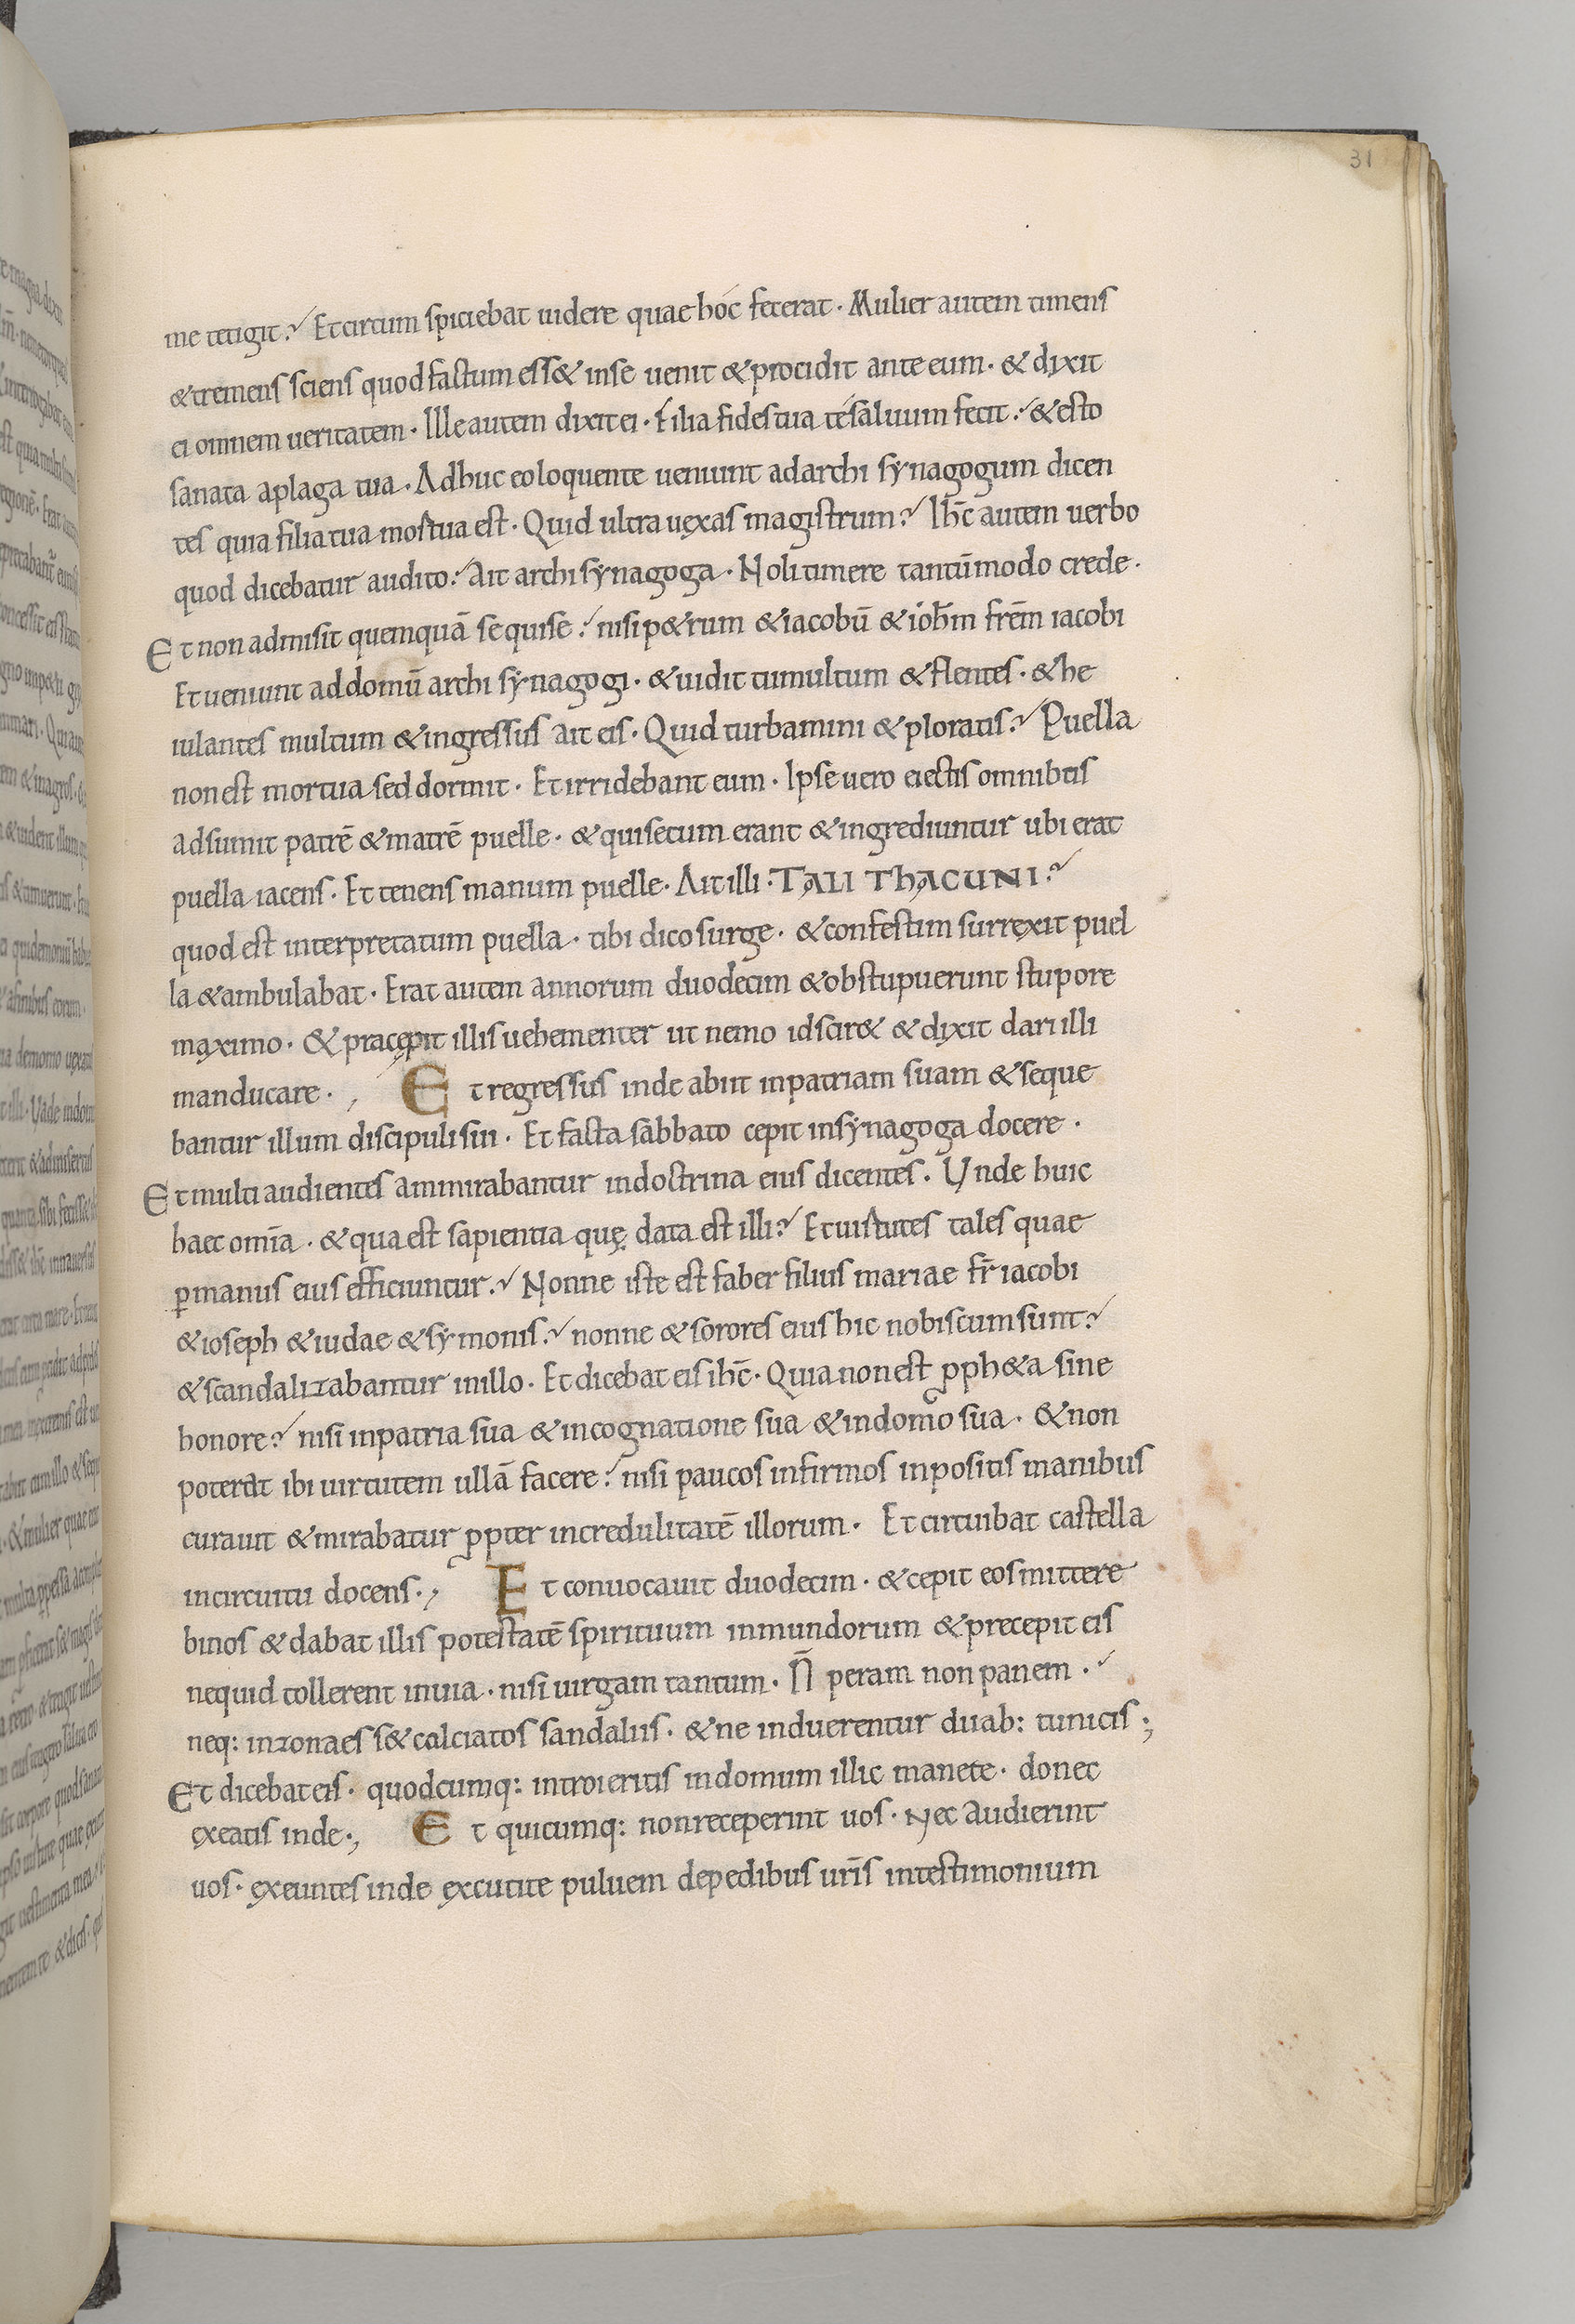 31
me tetigit? Et circum spiciebat uidere quae hóc fecerat · Mulier autem timens
& tremens sciens quod factum ess& inse uenit & procidit ante eum · & dixit
ei omnem ueritatem · Ille autem dixit ei · Filia fides tua té saluum fecit : & esto
sanata aplaga tua · Adhuc eo loquente ueniunt ad archi synagogum dicen
tes quia filia tua mortua est · Quid ultra uexas magistrum? Ihc̄ autem uerbo
quod dicebatur audito : Ait archi synagoga · Noli timere tantūmodo crede ·
Et non admisit quemquā sequise : nisi p&rum & iacobū & ioh̄m frēm iacobi
Et ueniunt ad domū archi synagogi · & uidit tumultum & flentes · & he
iulantes multum & ingressus ait eis · Quid turbamini & ploratis? Puella
non est mortua sed dormit · Et irridebant eum · Ipse uero eiectis omnibus
adsumit patrē & matrē puelle · & qui secum erant & ingrediuntur ubi erat
puella iacens · Et tenens manum puelle · Ait illi · TALI THACUNI?
quod est interpretatum puella · tibi dico surge · & confestim surrexit puel
la & ambulabat · Erat autem annorum duodecim & obstupuerunt stupore
maximo · & pracepit illis uehementer ut nemo id scir& & dixit dari illi
manducare · , Et regressus inde abiit inpatriam suam & seque
bantur illum discipuli sui · Et facta sabbato cepit insynagoga docere ·
Et multi audientes ammirabantur indoctrina eius dicentes . Unde huic
haec omīa · & qua est sapientia quę data est illi? Et uirtutes tales quae
ꝑmanus eius efficiuntur? Nonne iste est faber filius mariae fr̄ iacobi
& ioseph & iudae & symonis? nonne & sorores eius hic nobiscum sunt?
& scandalizabantur inillo · Et dicebat eis ihc̄ · Quia non est ꝓph&a sine
honore? nisi inpatria sua & incognatione sua & indomo sua · & non
poterat ibi uirtutem ullā facere : nisi paucos infirmos inpositis manibus
curauit & mirabatur ꝓpter incredulitatē illorum · Et circuibat castella
incircuitu docens · , Et conuocauit duodecim · & cepit eos mittere
binos & dabat illis potestatē spirituum inmundorum & precepit eis
nequid tollerent inuia · nisi uirgam tantum · N̄ peram non panem ·
neq: inzonaes s& calciatos sandaliis · & ne induerentur duab: tunicis ;
Et dicebat eis · quodcumq: introieritis indomum illic manete · donec
exeatis inde · , Et quicumq: non receperint uos · Nec audierint
uos · exeuntes inde excutite puluem depedibus ur̄is intestimonium